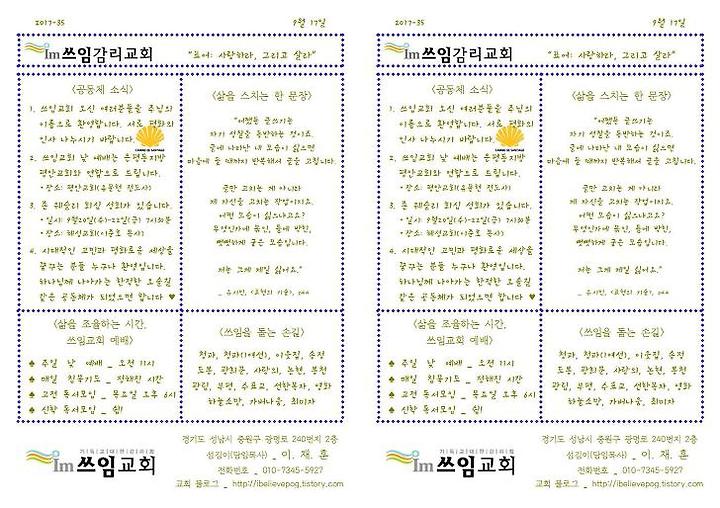 2017-35
9월 17일
Im쓰임감리교회
"표어: 사랑하라, 그리고 살라"
<공동체 소식>
1. 쓰임교회 오신 여러분들을 주님의
이름으로 환영합니다. 서로 평화의
인사 나누시기 바랍니다.
2. 쓰임교회 낮 예배는 은평동지방
평안교회와 연합으로 드립니다.
• 장소: 평안교회
3. 존 웨슬리 회심 성회가 있습니다.
• 일시: 9월20일(수)-22일(금) 7시30분
• 장소: 혜성교회
4. 시대적인 고민과 평화로운 세상을
꿈꾸는 분들 누구나 환영입니다.
하나님께 나아가는 한적한 오솔길
같은 공동체가 되었으면 합니다 ♥
<삶을 스치는 한 문장>
"어쨌든 글쓰기는
자기 성찰을 동반하는 것이죠.
글에 나타난 내 모습이 싫으면
마음에 들 때까지 반복해서 글을 고칩니다.
글만 고치는 게 아니라
제 자신을 고치는 작업이지요.
어떤 모습이 싫으냐고요?
무엇인가에 묶인, 틀에 박힌,
뻣뻣하게 굳은 모습입니다.
저는 그게 제일 싫어요."
_ 유시민, <표현의 기술>,
<삶을 조율하는 시간,
쓰임교회 예배>
♠ 주일 낮 예배 _ 오전 11시
♠ 매일 침묵기도 _ 정해진 시간
♠ 고전 독서모임 _ 목요일 오후 6시
♠ 신학 독서모임 _ 쉼!
<쓰임을 돕는 손길>
청파, 청파(1여선), 이웃길, 송전
도봉, 광희문, 사랑의, 논현, 봉천
광림, 부평, 수표교, 선한목자, 영화
하늘소망, 가버나움, 최미자
기독교대한감리회
Im 쓰임교회
경기도 성남시 중원구 광명로 240번지 2층
섬김이(담임목사) _ 이 재 훈
전화번호 _ 010-7345-5927
교회 블로그 _ http://ibelievepog.tistory.com
2017-35
9월 17일
Im쓰임감리교회
"표어: 사랑하라, 그리고 살라"
<공동체 소식>
1. 쓰임교회 오신 여러분들을 주님의
이름으로 환영합니다. 서로 평화의
인사 나누시기 바랍니다.
2. 쓰임교회 낮 예배는 은평동지방
평안교회와 연합으로 드립니다.
• 장소: 평안교회
3. 존 웨슬리 회심 성회가 있습니다.
• 일시: 9월20일(수)-22일(금) 7시30분
• 장소: 혜성교회
4. 시대적인 고민과 평화로운 세상을
꿈꾸는 분들 누구나 환영입니다.
하나님께 나아가는 한적한 오솔길
같은 공동체가 되었으면 합니다 ♥
<삶을 스치는 한 문장>
"어쨌든 글쓰기는
자기 성찰을 동반하는 것이죠.
글에 나타난 내 모습이 싫으면
마음에 들 때까지 반복해서 글을 고칩니다.
글만 고치는 게 아니라
제 자신을 고치는 작업이지요.
어떤 모습이 싫으냐고요?
무엇인가에 묶인, 틀에 박힌,
뻣뻣하게 굳은 모습입니다.
저는 그게 제일 싫어요."
_ 유시민, <표현의 기술>,
<삶을 조율하는 시간,
쓰임교회 예배>
♠ 주일 낮 예배 _ 오전 11시
♠ 매일 침묵기도 _ 정해진 시간
♠ 고전 독서모임 _ 목요일 오후 6시
♠ 신학 독서모임 _ 쉼!
<쓰임을 돕는 손길>
청파, 청파(1여선), 이웃길, 송전
도봉, 광희문, 사랑의, 논현, 봉천
광림, 부평, 수표교, 선한목자, 영화
하늘소망, 가버나움, 최미자
기독교대한감리회
Im 쓰임교회
경기도 성남시 중원구 광명로 240번지 2층
섬김이(담임목사) _ 이 재 훈
전화번호 _ 010-7345-5927
교회 블로그 _ http://ibelievepog.tistory.com